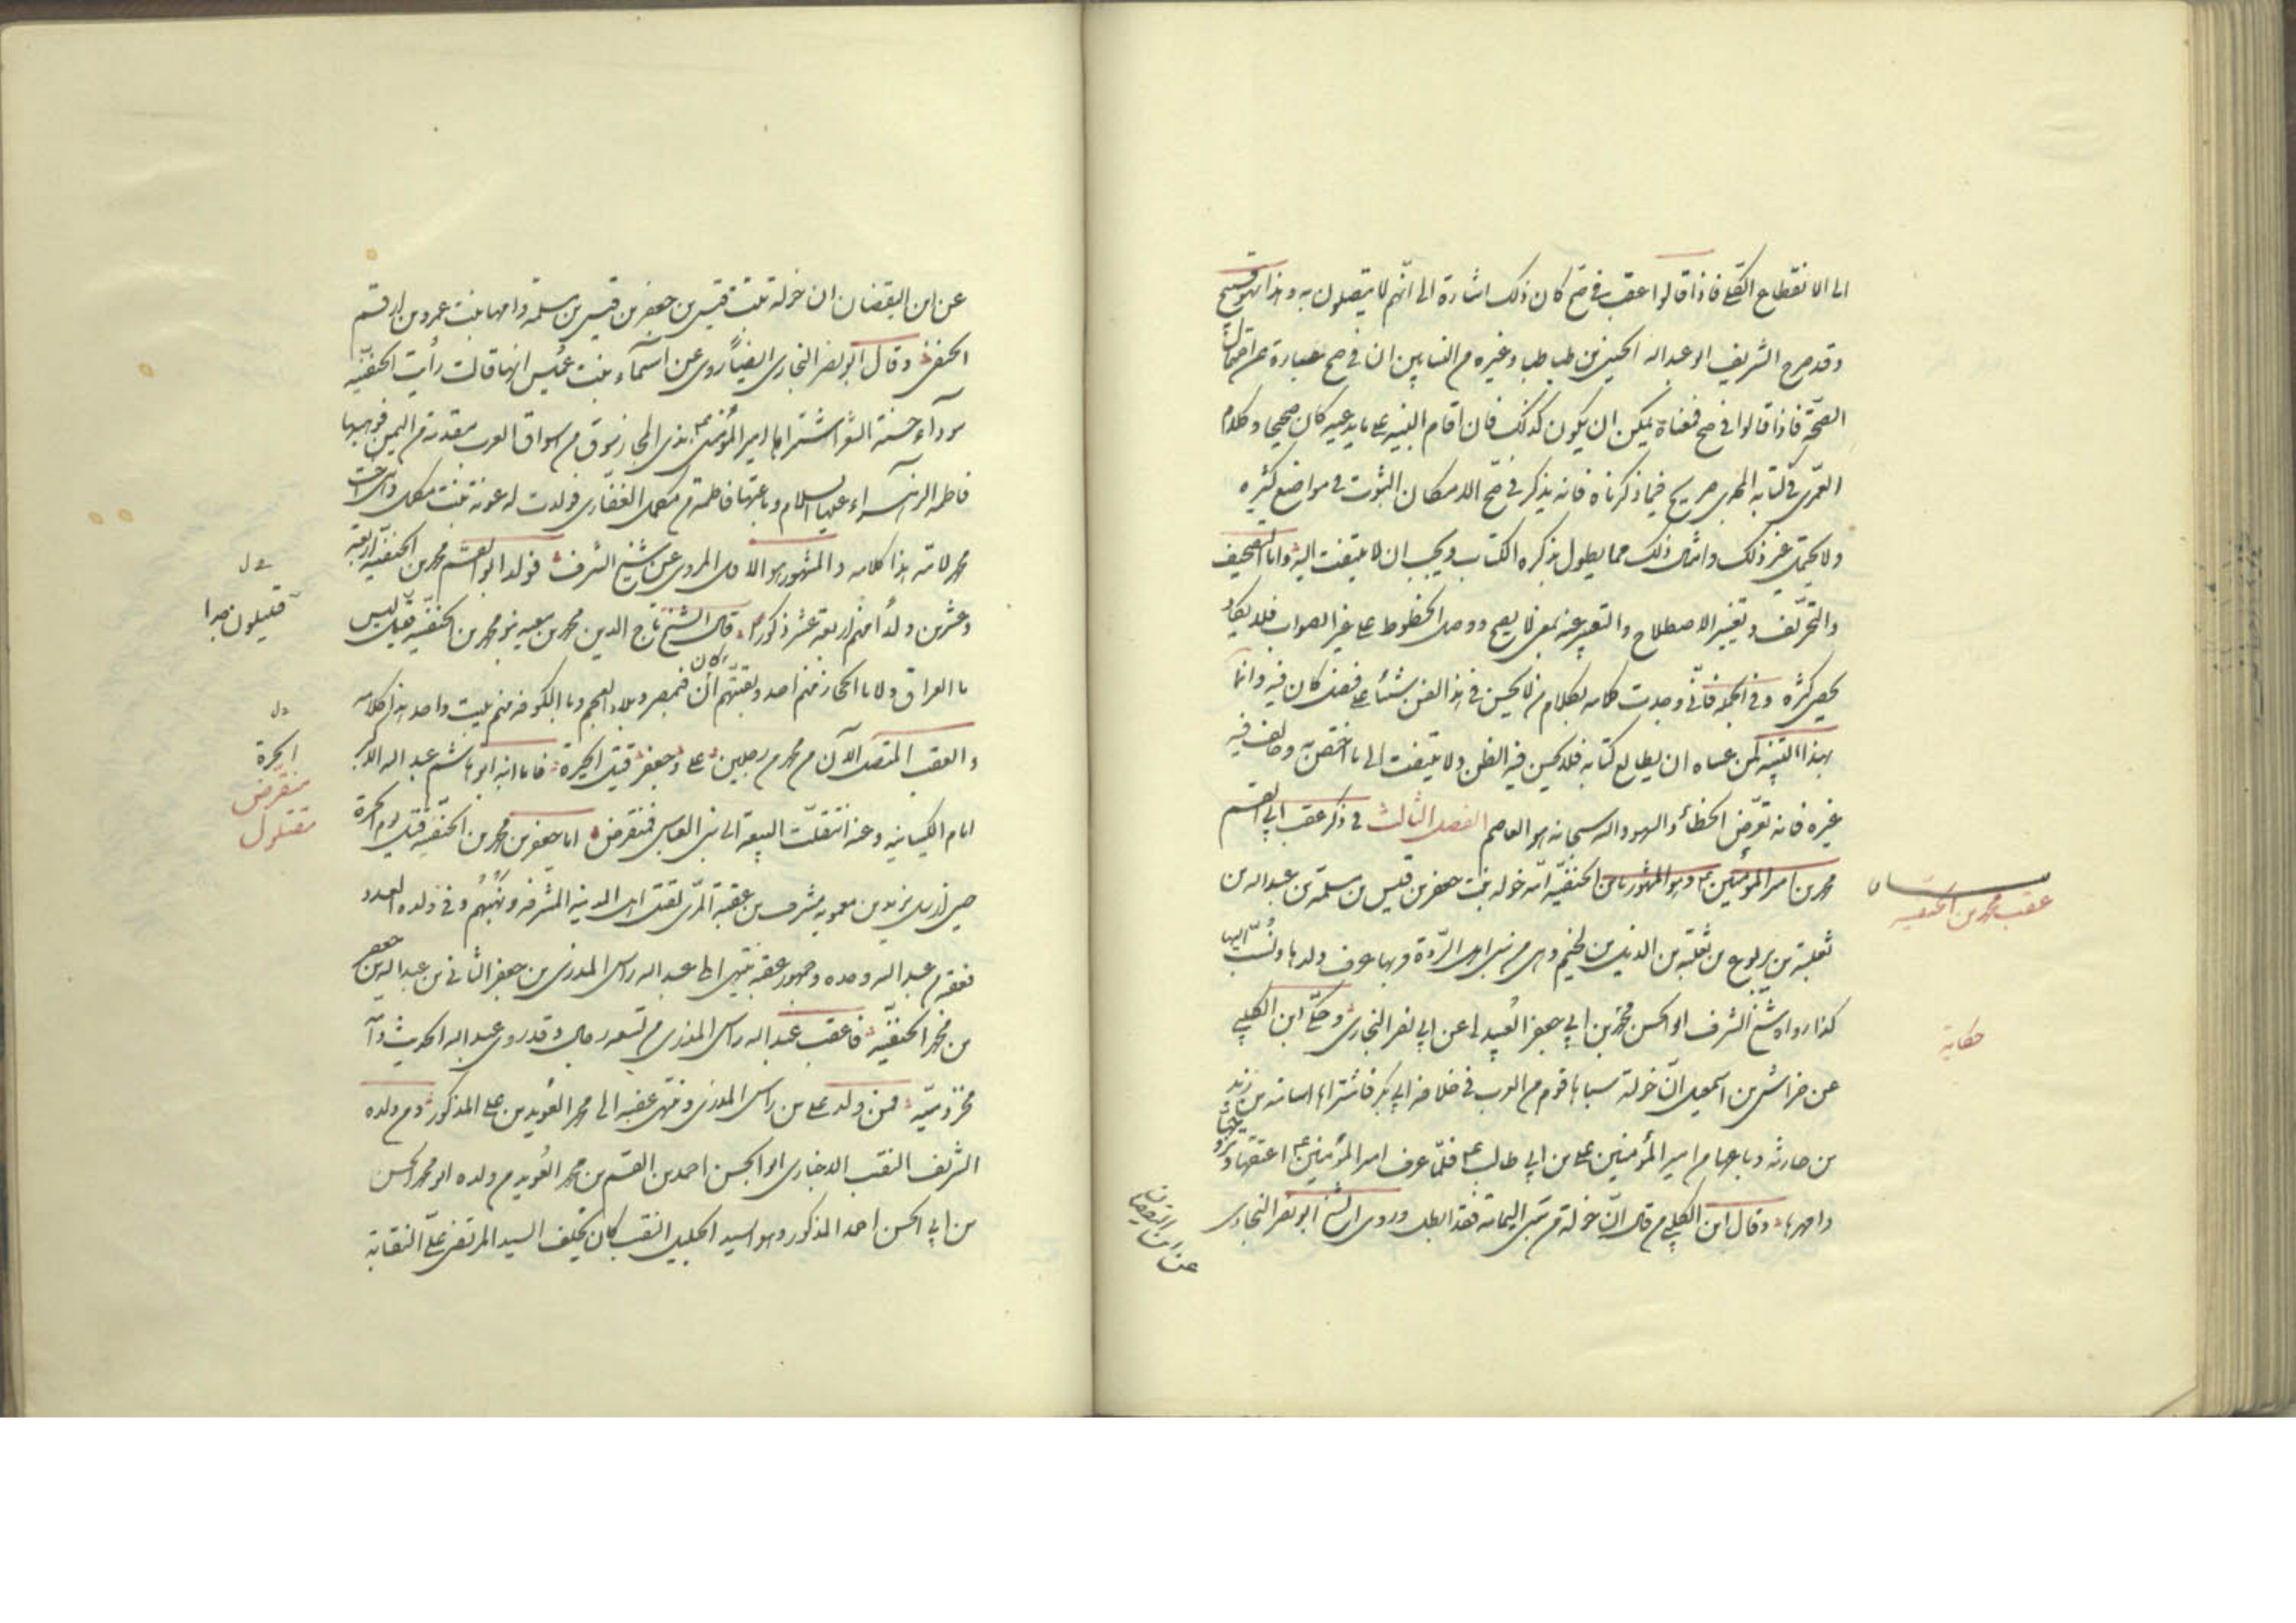 الى الانقطاع الكلي فاذا قالوا عقبه في صح كان ذلك اشارة الى انهم لا يتصلون به وهذا سهو قبيح
وقد صرح الشريف ابو عبد الله الحسين بن طباطبا وغيره من النسابين ان في صح عبارة عن احتمال
الصحة فاذا قالوا في صح فمعناه يمكن ان يكون كذلك فان اقام البينة على ما يدعيه كان صحيحا وكلام
العمرى في كتابه المجدى صريح فيما ذكرناه فانه يذكر في صح لامكان الثبوت في مواضع كثيره
ولا يحتمل غير ذلك وامثال ذلك مما يطول بذكره الكتاب ويجب ان لا يلتفت اليه واما التصحيف
والتحريف وتغيير الاصطلاح والتعبير عنه بمعنى لا يصح ووصل الخطوط على غير الصواب فلا يكاد
يحصى كثره وفي الجملة فانى وجدت كلامه كلام من لا يحسن في هذا الفن شيئا على فضل كان فيه وانما
بهذا التنبيه لمن عساه ان يطالع كتابه فلا يحسن فيه الظن ولا يلتفت الى ما اختص به وخالف فيه
غيره فانه تعرض الخطأ والسهو والله سبحانه هو العاصم الفصل الثالث في ذكر عقب ابى القسم
محمد بن امير المؤمنين ع وهو المشهور بابن الحنفيه امه خوله بنت جعفر بن قيس بن سلمة بن عبد الله بن
ثعلبة بن يربوع بن ثعلبة بن الديل بن لجيم وهى من سبى اهل الردة وبها عرف ولدها ونسب اليها
كذا رواه شيخ الشرف ابو الحسن محمد بن ابى جعفر العبيدلى عن ابى نصر البخارى وحكى ابن الكلبى
عن خراش بن اسمعيل ان خولة سباها قوم من العرب في خلافة ابى بكر فاشتراها اسامة بن زيد
بن حارثه وباعها من امير المؤمنين على بن ابى طالب ع فلما عرف امير المؤمنين ع اعتقها وتزوجها
وامهرها وقال ابن الكلبى من قال ان خولة من سبى اليمامة فقد ابطل وروى الشيخ ابو نصر البخارى
عقب محمد بن الحنفيه
حكاية
عن ابن اليقضان
عن ابن اليقضان ان خولة بنت قيس بن جعفر بن قيس بن سلمة وامها بنت عمرو بن ارقم
الحنفى وقال ابو نصر البخارى ايضاً روى عن اسماء بنت عميس انها قالت رأيت الحنفيه
سوداء حسنة الشعر اشتراها امير المؤمنين ع بذى المجاز سوق من اسواق العرب مقدمه من اليمن فوهبها
فاطمه الزهراء عليها السلام وباعتها فاطمة من مكمل الغفارى فولدت له عونة بنت مكمل وهى اخت
محمد لامه هذا كلامه والمشهور هو الاول المروى عن شيخ الشرف فولد ابو القسم محمد بن الحنفيه اربعة
وعشرين ولداً منهم اربعة عشر ذكورا قال الشيخ تاج الدين محمد بن معيه بنو محمد بن الحنفيه قليل ليس
بالعراق ولا بالحجاز منهم احد وبقيتهم ان كان فبمصر وبلاد العجم وبالكوفه منهم بيت واحد هذا كلامه
والعقب المتصل الآن من محمد من رجلين على وجعفر قتيل الحيرة فاما ابنه ابو هاشم عبد الله الاكبر
امام الكيسانيه وعنه انتقلت البيعة الى بنى العباس فمنقرض اما جعفر بن محمد بن الحنفيه قتل يوم الحرة
حين ارسل يزيد بن معويه مسرف بن عقبة المرى لقتل اهل المدينه المشرفه ونهبهم وفي ولده العدد
فعقبه من عبد الله وحده وجمهور عقبه ينتهى الى عبد الله راس المذرى بن جعفر الثانى بن عبد الله بن جعفر
بن محمد الحنفيه فاعقب عبد الله راس المذرى من تسعه رجال وقد روى عبد الله الحديث وامه
مخزوميه فمن ولده على بن راس المذرى ومنتهى عقبه الى محمد العويد بن على المذكور ومن ولده
الشريف النقيب الاخبارى ابو الحسن احمد بن القسم بن محمد العويد من ولده ابو محمد الحسن
بن ابى الحسن احمد المذكور وهو السيد الجليل النقيب كان يخلف السيد المرتضى على النقابة
قليلون جدا
الحرة
منقرض
مقتول